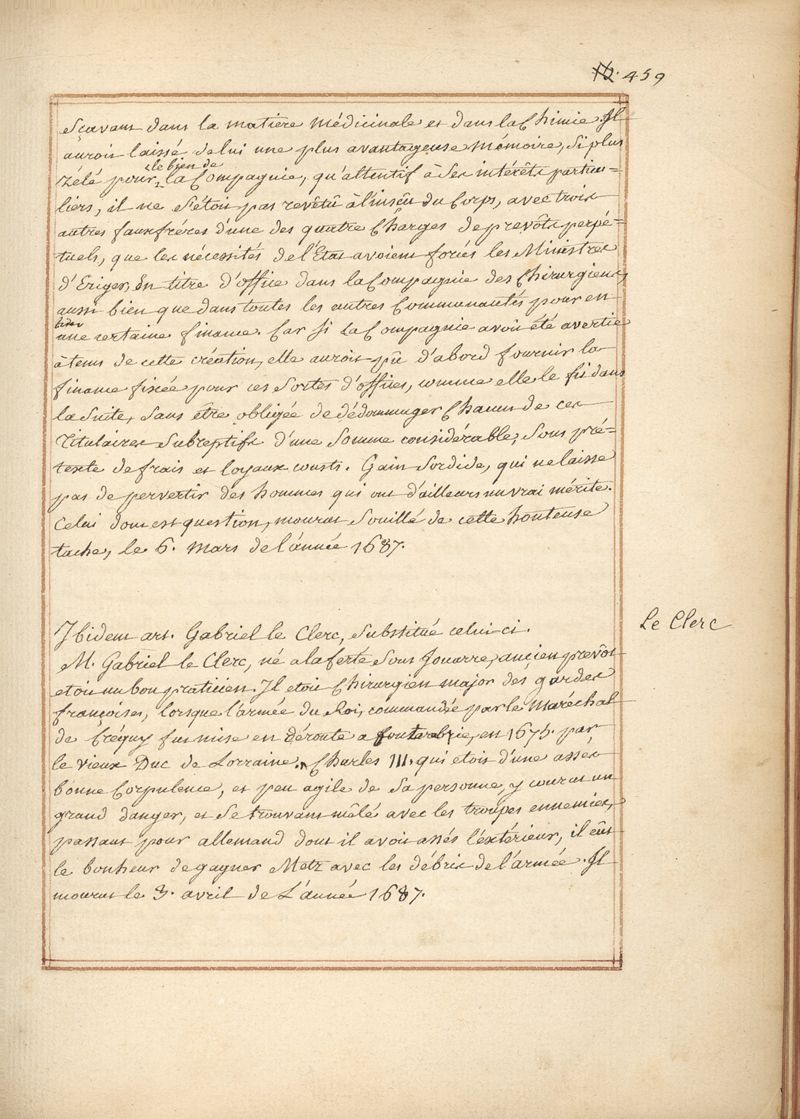 459
sçavant dans la matière médicinale et dans la Chimie. Il
auroit laissé de lui une plus avantageuse Mémoire, si plus
le bien de
zélé pour la Compagnie, qu'attentif à ses intérêts particu=
liers, il ne s'étoit pas revêtu à l'insçu du Corps, avec trois
autres faux frères d'une des quatre Charges de prevôts perpé=
tuels, que les nécessités de l'Etat avoient forcés les Ministres
d'Eriger, En titre d'office dans la Compagnie des Chirurgiens,
aussi bien que dans toutes les autres Communautés pour en
tirer
une certaine finance. Car si la Compagnie avoit été avertie
à tems de cette création, elle auroit pû d'abord fournir la
finance fixée pour ces sortes d'offices, comme elle le fit dans
la suite, sans être obligée de dédommager Chacun de ces
Titulaires subreptifs d'une somme considérable, sous pré=
texte de frais et loyaux cousts. Gain sordide, qui ne laisse
pas de pervertir des hommes qui ont d'ailleurs un vrai mérite.
Celui dont est question, mourut souillé de cette honteuse
tache, le 6. Mars de l'année 1687.
Ibidem art. Gabriel le Clerc, substitué celui-ci.
Le Clerc
M. Gabriel le Clerc, né a la ferté sous Jouarre, ancien prevôt
etoit un bon praticien. Il etoit Chirurgien major des gardes
françoises, lorsque l'armée du Roi, commandée par le Maréchal
de Créquy fut mise en déroute a , en 1675. par
le vieux Duc de Lorraine, Charles III. qui etoit d'une assés
bonne Corpulence, et peu agile de sa personne, y courut un
grand danger, et se trouvant mêlé avec les troupes ennemies,
passant pour allemand dont il avoit assés l'extérieur, il eût
le bonheur de gagner Metz avec les débris de l'armée. Il
mourut le 3. avril de L'année 1687.